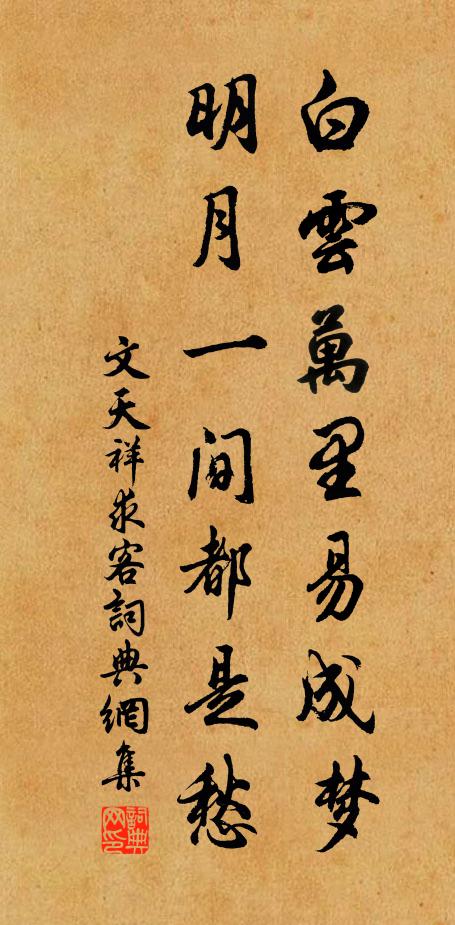 白雲萬里易成梦
明月一间都是愁
文天祥求客詞典網集
詞典网印